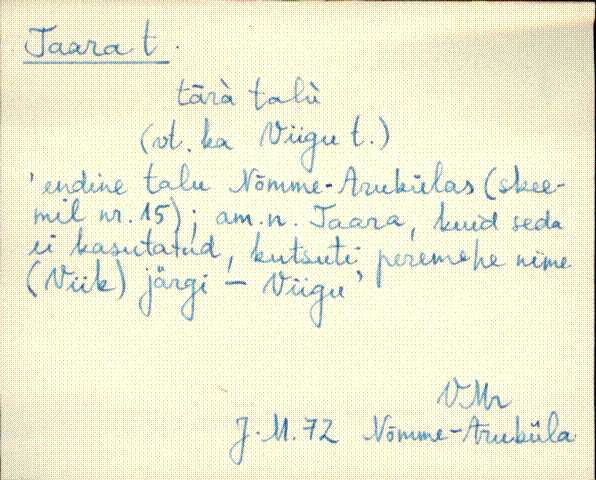 Taara t.
tārà talù
(vt. ka Viigu t.)
'endine talu Nõmme-Arukülas (skee-
mil nr. 15); am. n. Taara, kuid seda
ei kasutatud, kutsuti peremehe nime
(Viik) järgi – Viigu'
VMr
J.M. 72 Nõmme-Aruküla